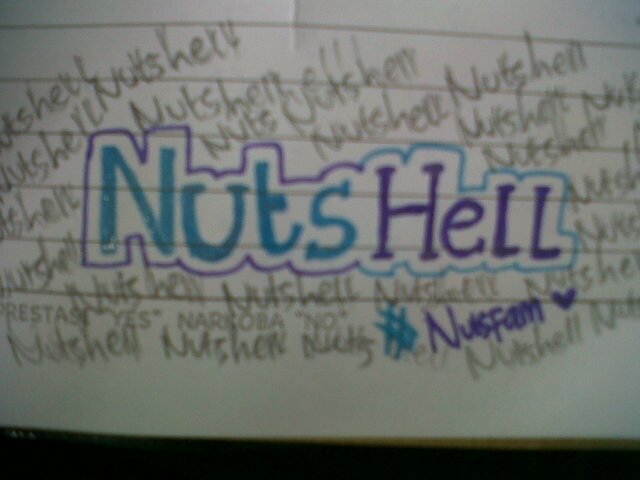 Nutshell
Nutshell Nutshell Nutshell Nutshell
Nutshell Nuts Nutshell Nutshell
Nutshell
NutsHell
Nutshell
Nutshell Nutshell Nutshell Nutshell Nutshell
PRESTASI "YES" NARKOBA "NO"
# Nusfam
Nutshell Nutshell Nutshell